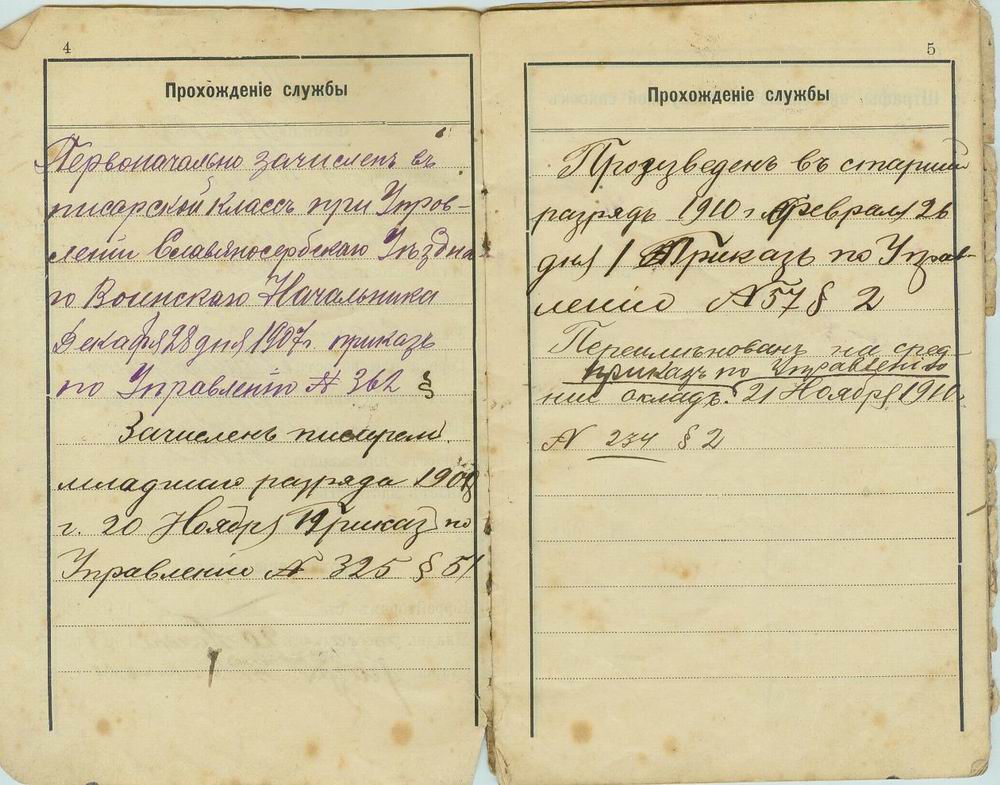 4
Прохожденіе службы
Первоначально зачисленъ въ
писарской классъ при Управ-
леніи Славяносербскаго Уѣздна
го Воинскаго Начальника
Декабря 28 дня 1907 г. приказъ
по Управленію № 362 §
Зачисленъ писаремъ
младшаго разряда 1908
г. 20 Ноября Приказъ по
Управленію № 325 § 51
5
Прохожденіе службы
Произведенъ въ старшій
разрядъ 1910 г Февраля 26
дня / Приказъ по Управ-
ленію № 57 § 2
Переименованъ на сред-
приказъ по Управленію
ній окладъ. 21 Ноября 1910
№ 234 § 2